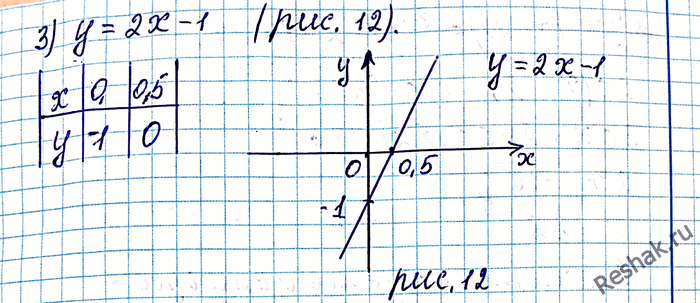 3) y = 2x - 1 (рис. 12).
x 0 0,5
y -1 0
y
y = 2x - 1
0 0,5 x
-1
рис. 12
Reshak.ru